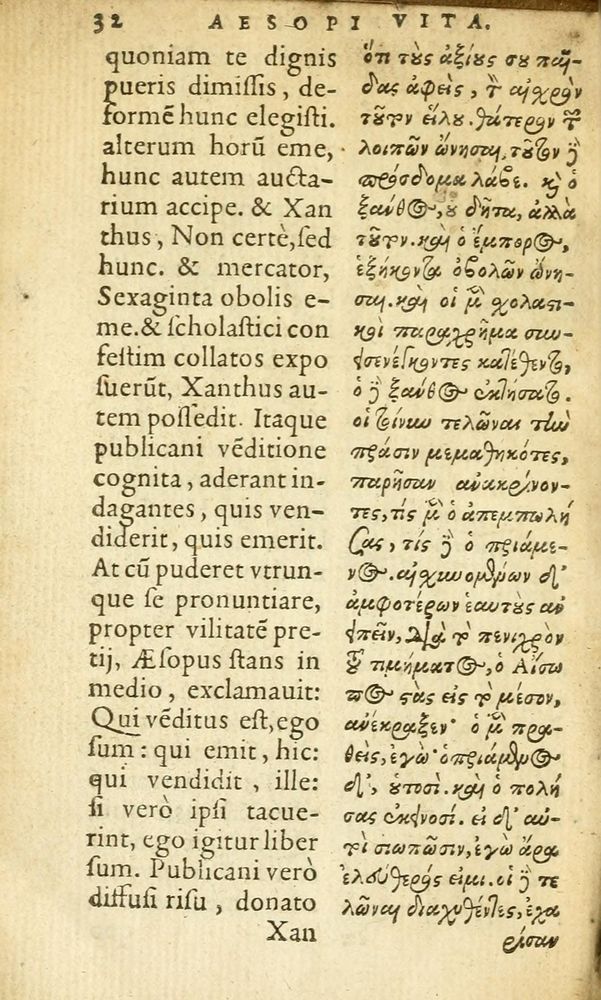 32 AESOPI VITA.
quoniam te dignis
pueris dimiſſis, de-
formẽ hunc elegiſti.
alterum horũ eme,
hunc autem aucta-
rium accipe. & Xan
thus, Non certè, ſed
hunc. & mercator,
Sexaginta obolis e-
me. & ſcholaſtici con
feſtim collatos expo
ſuerũt, Xanthus au-
tem poſſedit. Itaque
publicani vẽditione
cognita, aderant in-
dagantes, quis ven-
diderit, quis emerit.
At cũ puderet vtrun-
que ſe pronuntiare,
propter vilitatẽ pre-
tij, Æſopus ſtans in
medio, exclamauit:
Qui vẽditus eſt, ego
ſum: qui emit, hic:
qui vendidit, ille:
ſi verò ipſi tacue-
rint, ego igitur liber
ſum. Publicani verò
diffuſi riſu, donato
Xan
ὅτι τοὺς ἀξίους σου παῖ-
δας ἀφεὶς, τὸν αἰσχρὸν
τοῦτον εἵλου. θάτερον τῶν
λοιπῶν ὤνησαι, τοῦτον δὲ
πρόσδομα λάβε. καὶ ὁ
ξάνθος, οὐ δῆτα, ἀλλὰ
τοῦτον. καὶ ὁ ἔμπορος,
ἑξήκοντα ὀβολῶν ὤνη-
σαι. καὶ οἱ μὲν σχολαστι-
κοὶ παραχρῆμα συν-
εισενέγκοντες κατέθεντο,
ὁ δὲ ξάνθος ἐκτήσατο.
οἱ τοίνυν τελῶναι τὴν
πρᾶσιν μεμαθηκότες,
παρῆσαν ἀνακρίνον-
τες, τίς μὲν ὁ ἀπεμπωλή
σας, τίς δὲ ὁ πριάμε-
νος. αἰσχυνομένων δ'
ἀμφοτέρων ἑαυτοὺς ἀν
ειπεῖν, διὰ τὸ πενιχρὸν
τοῦ τιμήματος, ὁ Αἴσω
πος στὰς εἰς τὸ μέσον,
ἀνέκραξεν· ὁ μὲν πρα-
θεὶς, ἐγώ· ὁ πριάμενος
δ', οὑτοσί. καὶ ὁ πολή
σας ἐκεινοσί. εἰ δ' αὐ-
τοὶ σιωπῶσιν, ἐγὼ ἄρα
ἐλεύθερός εἰμι. οἱ δὲ τε
λῶναι διαχυθέντες, ἐχα
ρίσαν